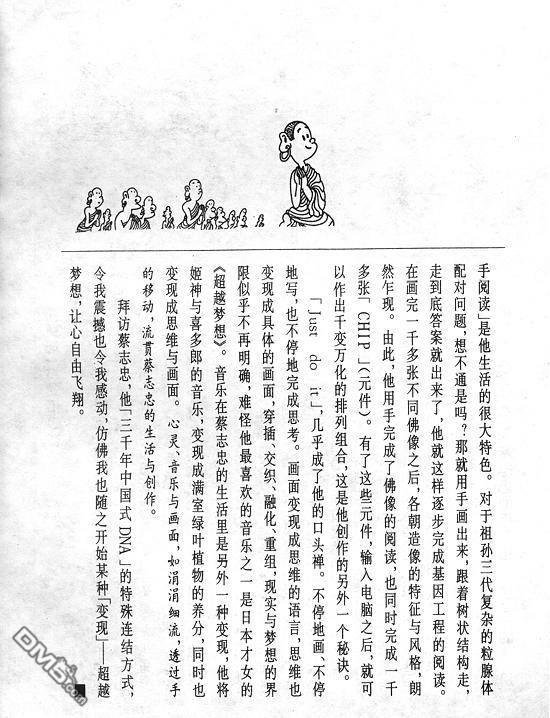 手阅读」是他生活的很大特色。对于祖孙三代复杂的粒腺体
配对问题，想不通是吗？那就用手画出来，跟着树状结构走，
走到底答案就出来了，他就这样逐步完成基因工程的阅读。
在画完一千多张不同佛像之后，各朝造像的特征与风格，朗
然乍现。由此，他用手完成了佛像的阅读，也同时完成一千
多张「CHIP」（元件）。有了这些元件，输入电脑之后，就可
以作出千变万化的排列组合，这是他创作的另外一个秘诀。
「Just do it」，几乎成了他的口头禅。不停地画、不停
地写，也不停地完成思考。画面变现成思维的语言，思维也
变现成具体的画面，穿插、交织、融化、重组，现实与梦想的界
限似乎不再明确，难怪他最喜欢的音乐之一是日本才女的
《超越梦想》。音乐在蔡志忠的生活里是另外一种变现，他将
姬神与喜多郎的音乐，变现成满室绿叶植物的养分，同时也
变现成思维与画面。心灵、音乐与画面，如涓涓细流，透过手
的移动，流贯蔡志忠的生活与创作。
拜访蔡志忠，他「三千年中国式DNA」的特殊连结方式，
令我震撼也令我感动，仿佛我也随之开始某种「变现」——超越
梦想，让心自由飞翔。■